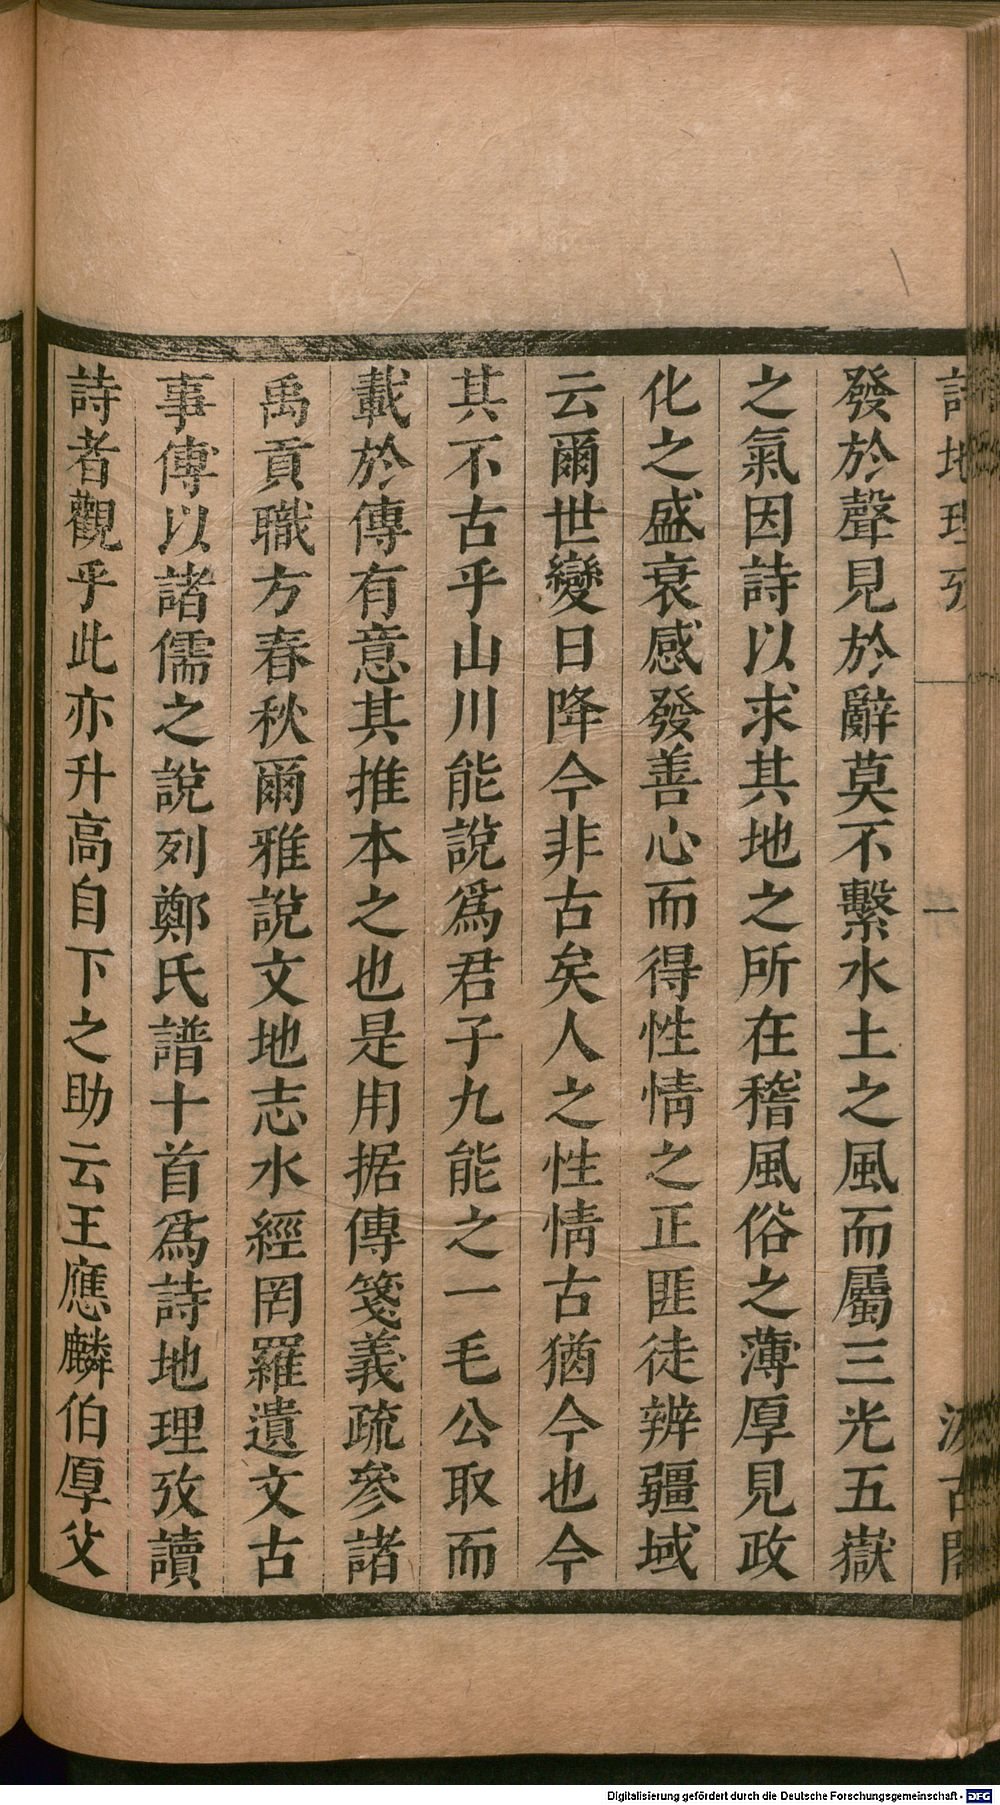 詩地理攷
一
汲古閣
發於聲見於辭莫不繫水土之風而屬三光五嶽
之氣因詩以求其地之所在稽風俗之薄厚見政
化之盛衰感發善心而得性情之正匪徒辨疆域
云爾世變日降今非古矣人之性情古猶今也今
其不古乎山川能說爲君子九能之一毛公取而
載於傳有意其推本之也是用据傳箋義疏參諸
禹貢職方春秋爾雅說文地志水經罔羅遺文古
事傅以諸儒之說列鄭氏譜十首爲詩地理攷讀
詩者觀乎此亦升高自下之助云王應麟伯厚父
Digitalisierung gefördert durch die Deutsche Forschungsgemeinschaft - DFG